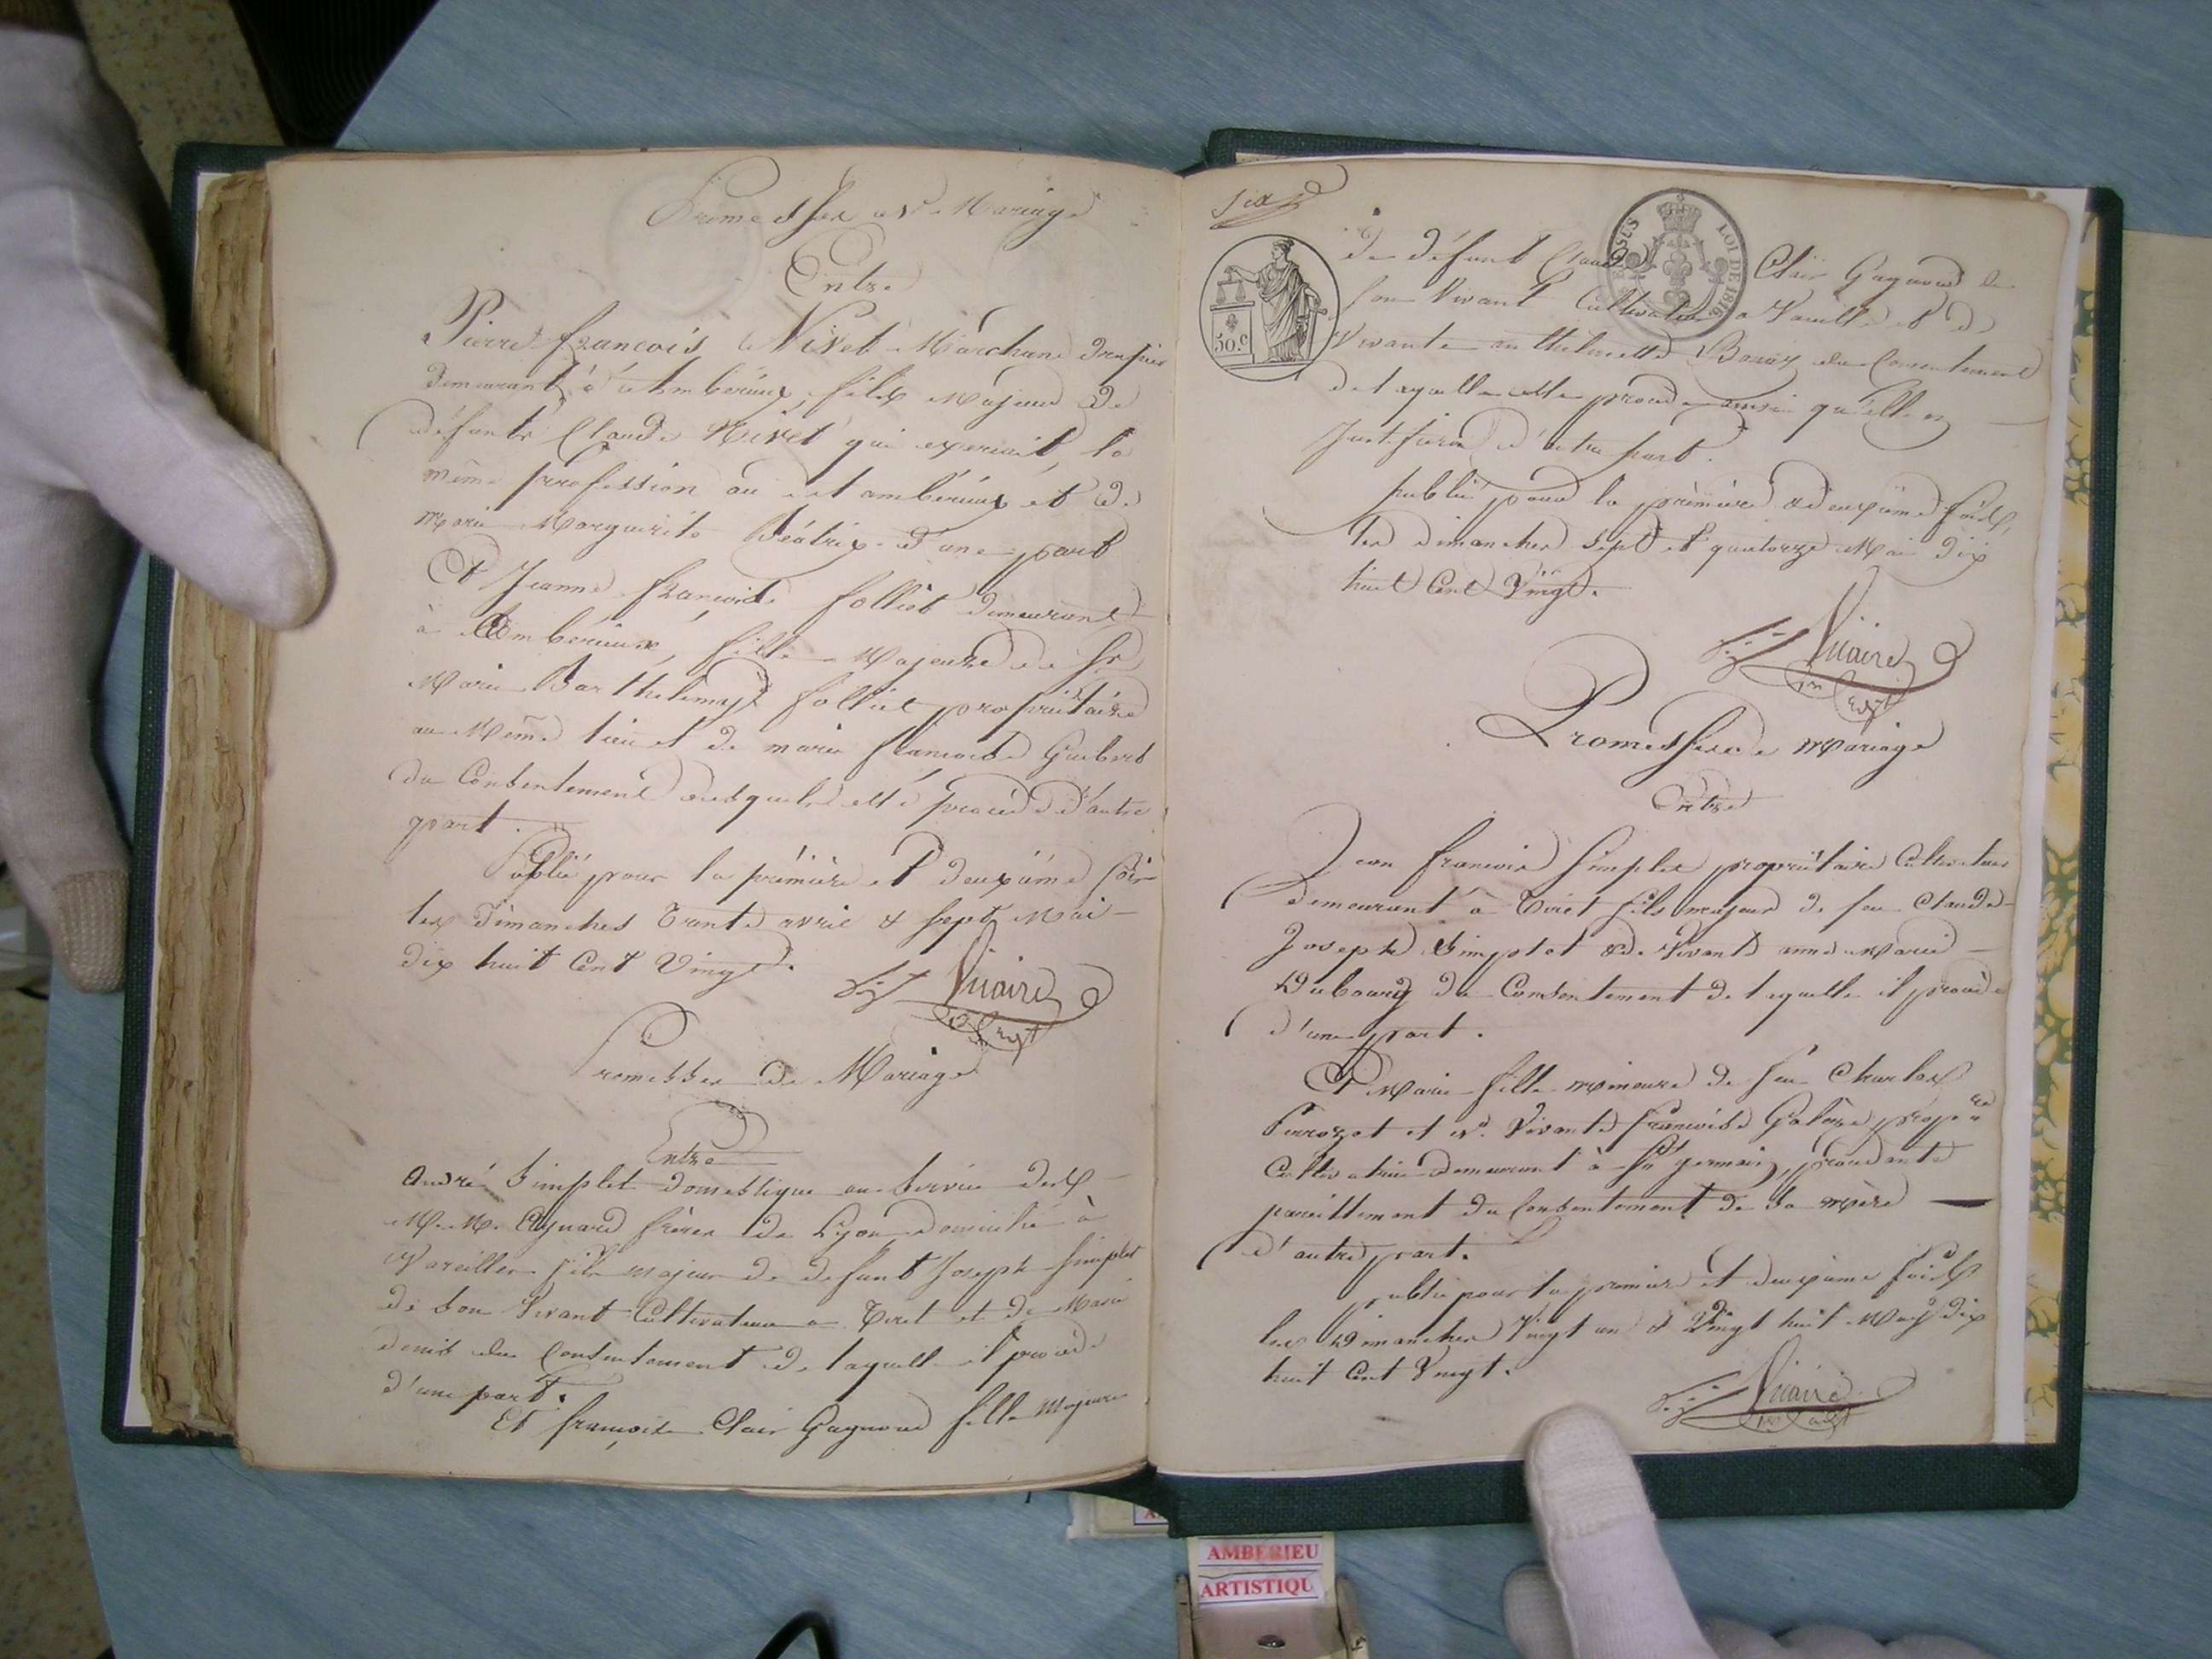 Promesses de Mariage
Entre
Pierre françois Nivet Marchand drapier
demeurant à Ambérieux, fils Majeur de
défunt Claude Nivet qui exercait la
même profession au dit ambérieux et de
Marie Marguerite Béatrix d'une part
Et Jeanne françoise folliet demeurant
à Ambérieux, fille Majeure de Sr
Marie Barthelemy folliet propriétaire
au Même lieu et de marie françoise Guibert
du Consentement desquels elle procède d'autre
part.
Publié pour la première et deuxième fois
les dimanches trente avril & sept Mai
dix huit Cent Vingt.
Promesses de Mariage
Entre
André Simplet domestique au Service des
M.M. Aynard frères de Lyon domicilié à
Vareilles fils majeur de defunt Joseph Simplet
de son Vivant Cultivateur à Tiret et de Marie
denis du Consentement de laquelle il procède
d'une part.
Et françoise Clair Gagnoud fille Majeure
six
50.c
LOI DE 1816
de défunt Claude Clair Gagnoud de
son Vivant Cultivateur à Vareilles et de
Vivante anthelmette du Consentement
de laquelle elle procède ainsi qu'elle en
Justifiera d'autre part.
publié pour la première & deuxième fois,
les dimanches sept et quatorze Mai dix
huit Cent Vingt.
Promesses de Mariage
Entre
Jean francois Simplet propriétaire Cultivateur
demeurant à Tiret fils majeur de feu Claude
Joseph Simplet & de Vivante anne Marie
Dubourg du Consentement de laquelle il procède
d'une part.
Et Marie fille mineure de feu Charles
et de Vivante francoise prop.re
Cultivatrice demeurant à St germain, procédante
pareillement du Consentement de Sa mère
d'autre part.
publié pour la premiere et deuxieme fois
les Dimanches Vingt un & Vingt huit May dix
huit Cent Vingt.
AMBERIEU
ARTISTIQU